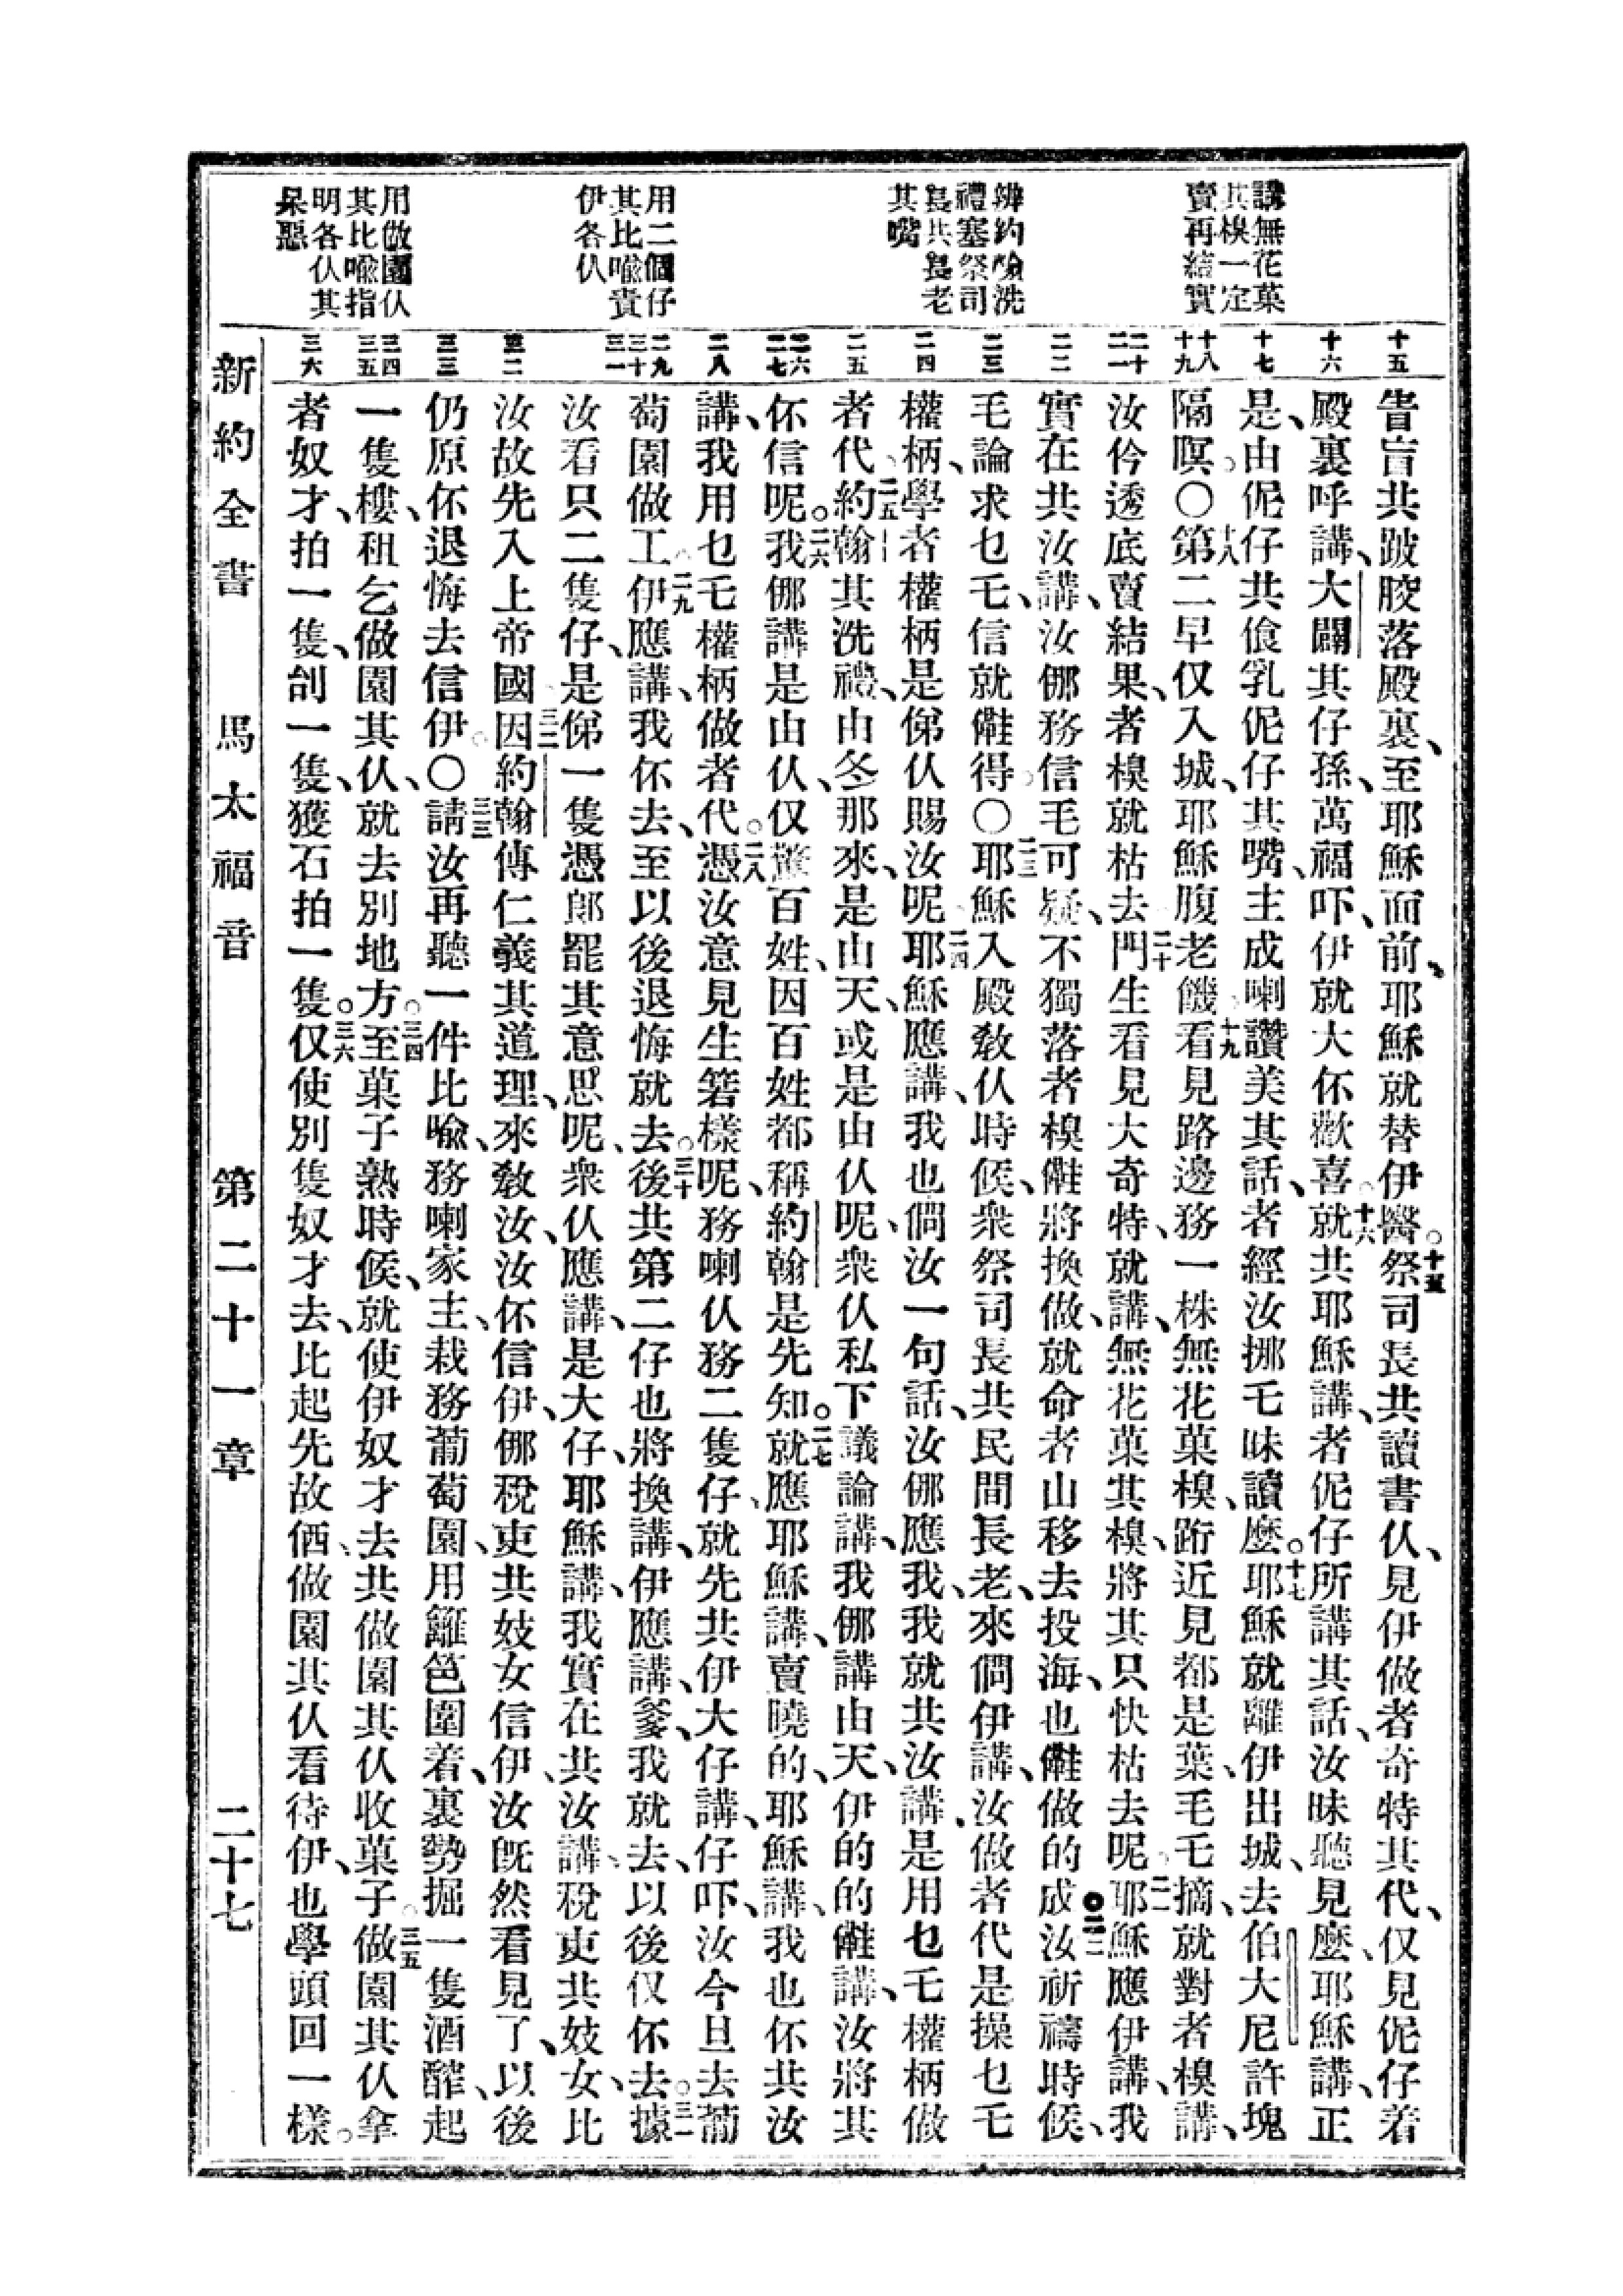 講無花菓
其樹一定
賣再結實
辨約翰洗
禮塞祭司
長共長老
其嘴
用二個仔
其比喻責
伊各仈
用做園仈
其比喻指
明各仈其
呆惡
十五
十六
十七
十八
十九
二十
二一
二二
二三
二四
二五
二六
二七
二八
二九
三十
三一
三二
三三
三四
三五
三六
眚盲共跛骹落殿裏、至耶穌面前、耶穌就替伊醫。十五祭司長共讀書仈、見伊做者奇特其代、仅見伲仔着
殿裏呼講、大闢其仔孫、萬福吓、伊就大伓歡喜。十六就共耶穌講、者伲仔所講其話、汝昧聽見麼、耶穌講、正
是、由伲仔共食乳伲仔其嘴、主成喇讚美其話、者經汝挪毛昧讀麼。十七耶穌就離伊出城、去伯大尼許塊
隔暝。〇十八第二早仅入城、耶穌腹老饑。十九看見路邊務一株無花菓樹、跡近見都是葉、毛乇摘、就對者樹講、
汝仱透底賣結果、者樹就枯去。二十門生看見大奇特、就講、無花菓其樹、將其只快枯去呢。二一耶穌應伊講、我
實在共汝講、汝㑚務信毛可疑、不獨落者樹㑻將換做、就命者山移去投海、也㑻做的成。二二汝祈禱時候、
毛論求乜乇、信就㑻得。〇二三耶穌入殿敎仈時候、衆祭司長共民間長老、來倜伊講、汝做者代是操乜乇
權柄、學者權柄是俤仈賜汝呢。二四耶穌應講、我也倜汝一句話、汝㑚應我、我就共汝講、是用乜乇權柄做
者代。二五約翰其洗禮、由冬那來、是由天、或是由仈呢、衆仈私下議論講、我㑚講由天、伊的的㑻講、汝將其
伓信呢。二六我㑚講是由仈、仅驚百姓、因百姓都稱約翰是先知。二七就應耶穌講、賣曉的、耶穌講、我也伓共汝
講、我用乜乇權柄做者代。二八憑汝意見生箬樣呢、務喇仈務二隻仔、就先共伊大仔講、仔吓、汝今旦去葡
萄園做工。二九伊應講、我伓去、至以後退悔就去。三十後共第二仔也將換講、伊應講、爹、我就去、以後仅伓去。三一據
汝看只二隻仔、是俤一隻憑郎罷其意思呢、衆仈應講、是大仔、耶穌講、我實在共汝講、稅吏共妓女、比
汝故先入上帝國。三二因約翰傳仁義其道理、來敎汝、汝伓信伊、㑚稅吏共妓女信伊、汝旣然看見了、以後
仍原伓退悔去信伊。〇三三請汝再聽一件比喻、務喇家主、栽務葡萄園、用籬笆圍着、裏勢掘一隻酒醡、起
一隻樓、租乞做園其仈、就去別地方。三四至菓子熟時候、就使伊奴才、去共做園其仈收菓子。三五做園其仈拿
者奴才、拍一隻、刣一隻、獲石拍一隻。三六仅使別隻奴才去、比起先故価、做園其仈看待伊、也學頭回一樣。
新約全書　馬太福音　第二十一章　二十七